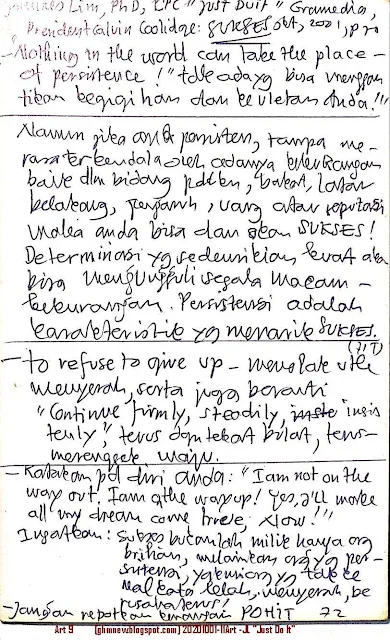 Lim, PhD, CPC "Just Do It" Gramedia,
President Calvin Coolidge: SUKSES Okt, 2001, p 70
- Nothing in the world can take the place
of persistence!" tdk ada yg bisa menggan
tikan kegigihan dan keuletan Anda!!"
Namun jika anda persisten, tanpa me-
rasa terkendala oleh adanya kekurangan
baik dlm bidang pddkn, bakat, latar
belakang, pengaruh, uang atau reputasi
maka anda bisa dan akan SUKSES!
Determinasi yg sedemikian kuat akan
bisa mengungguli segala macam
kekurangan. Persistensi adalah
karakteristik yg menarik SUKSES.
(71T)
- to refuse to give up - menolak utk
menyerah, serta juga berarti
"Continue firmly, steadily, insis
tently", terus dgn tekad bulat, terus-
merangsek maju.
- Katakan pd diri anda: "I am not on the
way out, I am on the way up! Yes, I'll make
all my dream come true, Now!!"
Ingatkan: Sukses bukanlah milik hanya org
brilian, melainkan org yg per-
sistensi, yg tak ce
lelah, menyerah, be
rusaha terus!
- Jangan repotkan POHIT 72
Art 9 [ghmnewblogspot.com] 20201001-11Art -JL "Just Do It"